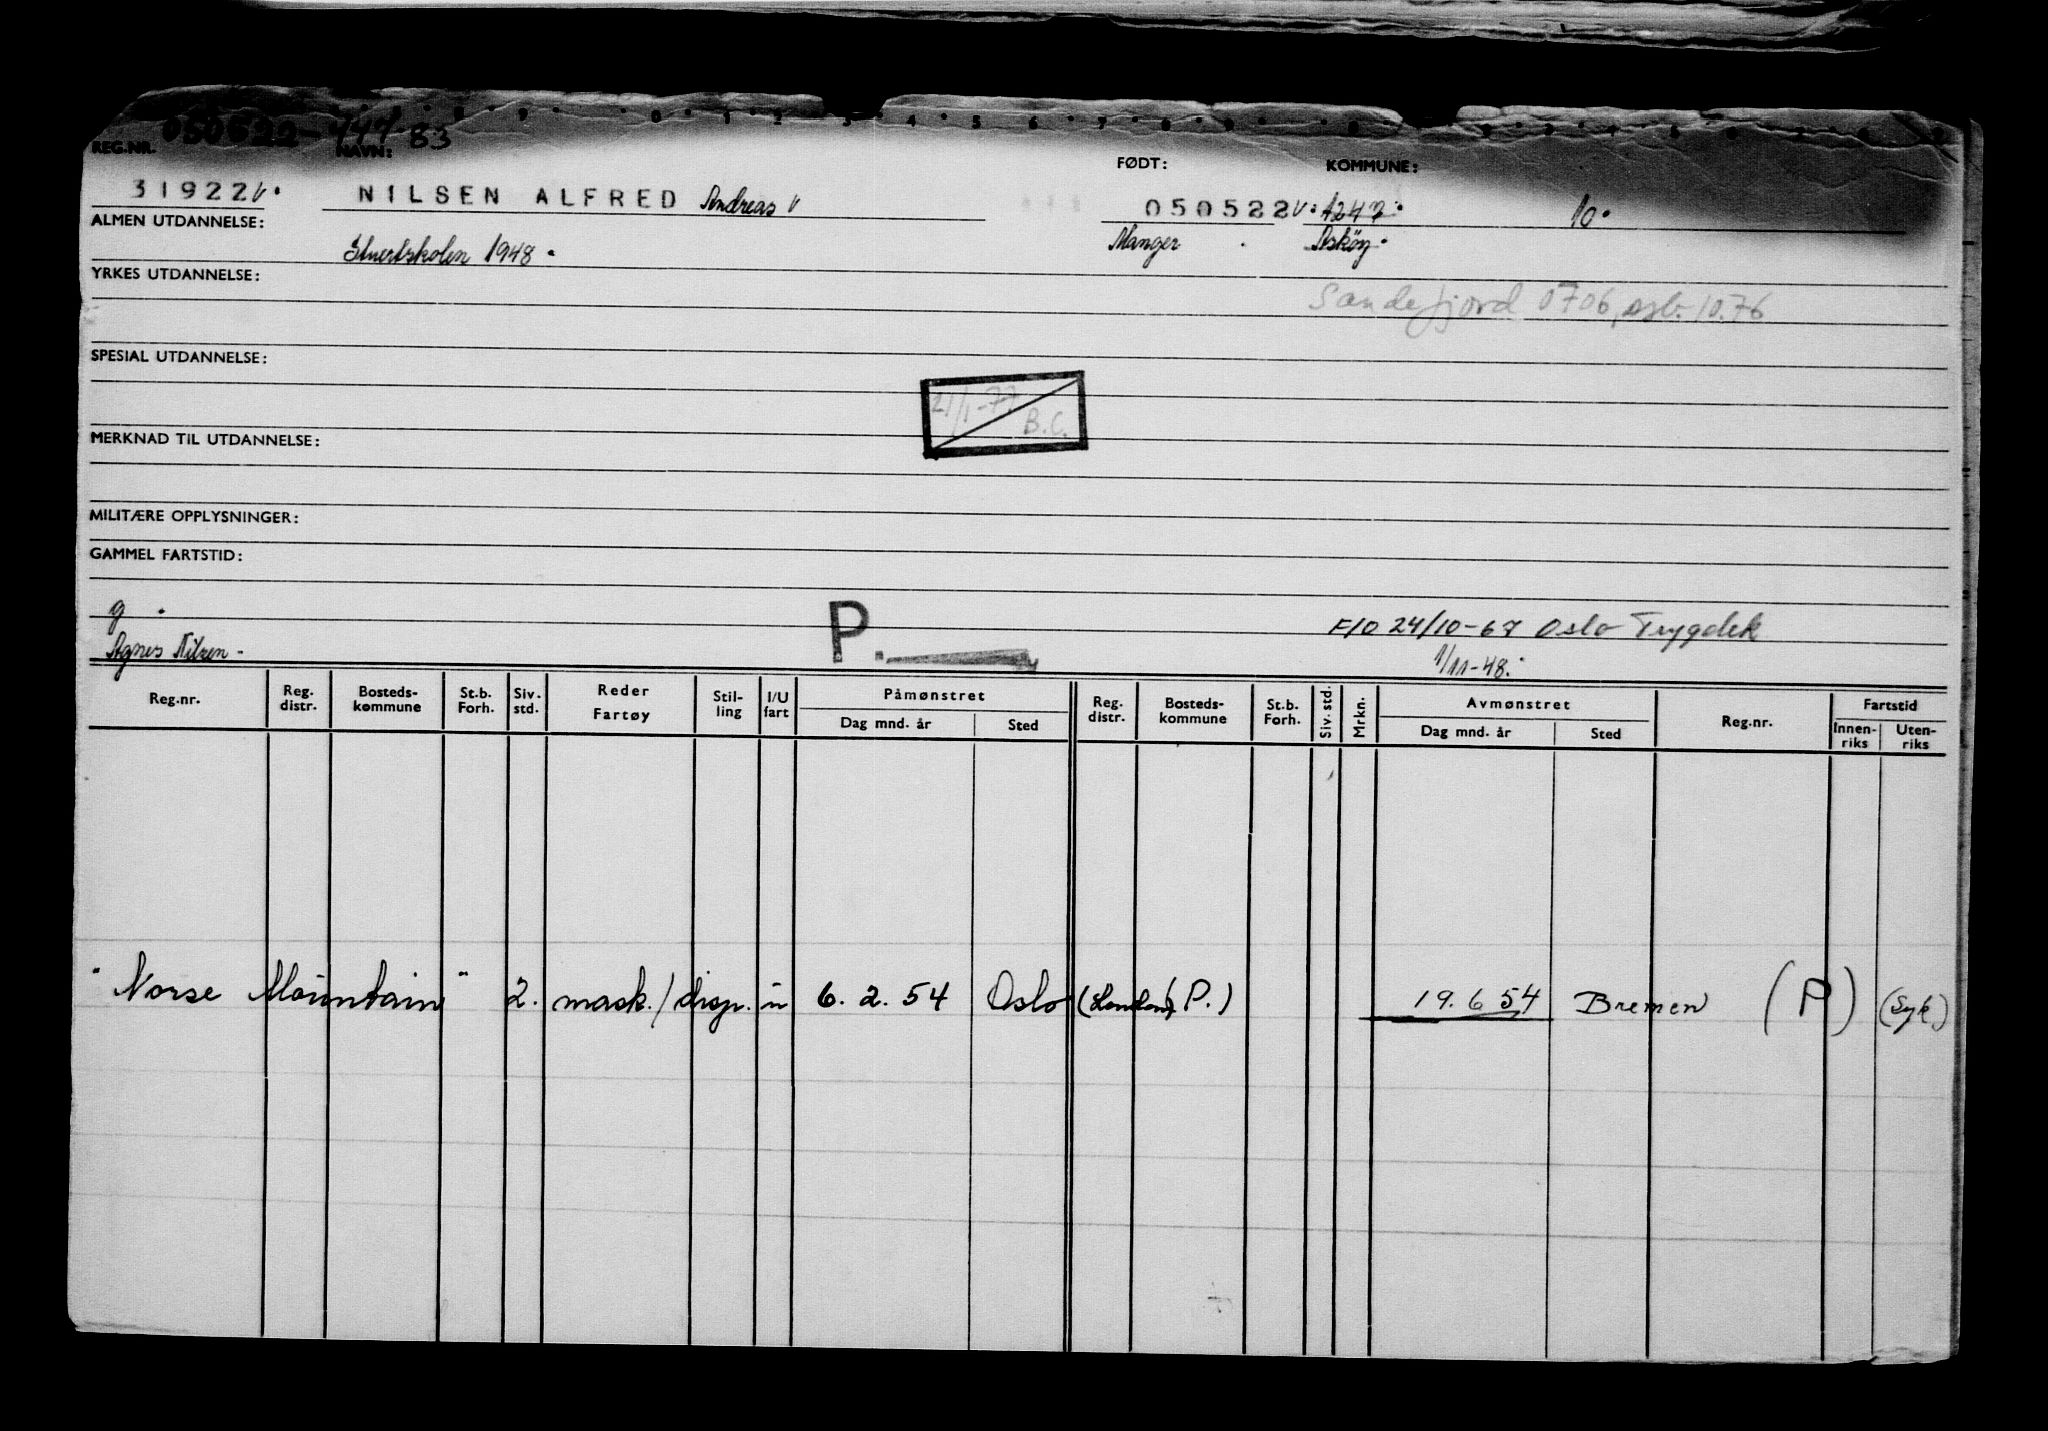 050522-74783
REG.NR. NAVN: FØDT: KOMMUNE:
31922 V. NILSEN ALFRED Andreas V 050522 V. 1247. 10.
ALMEN UTDANNELSE: Stuertskolen 1948. Manger Askøy.
YRKES UTDANNELSE:
Sandefjord 0706, 10.76
SPESIAL UTDANNELSE:
21/1-77
B.C.
MERKNAD TIL UTDANNELSE:
MILITÆRE OPPLYSNINGER:
GAMMEL FARTSTID:
g .
P. F/O 24/10-67 Oslo Trygdek
Agnes Nilsen - 1/11-48.
Reg.nr. Reg. distr. Bosteds-kommune St.b. Forh. Siv. std. Reder Fartøy Stil-ling I/U fart Påmønstret Dag mnd. år Sted Reg. distr. Bosteds-kommune St.b. Forh. Siv. std. Mrkn. Avmønstret Dag mnd. år Sted Reg.nr. Fartstid Innen-riks Uten-riks
"Norse Mountain" 2. mask./disp. u 6. 2. 54 Oslo (London, P.) 19. 6 54 Bremen (P) (Syk.)